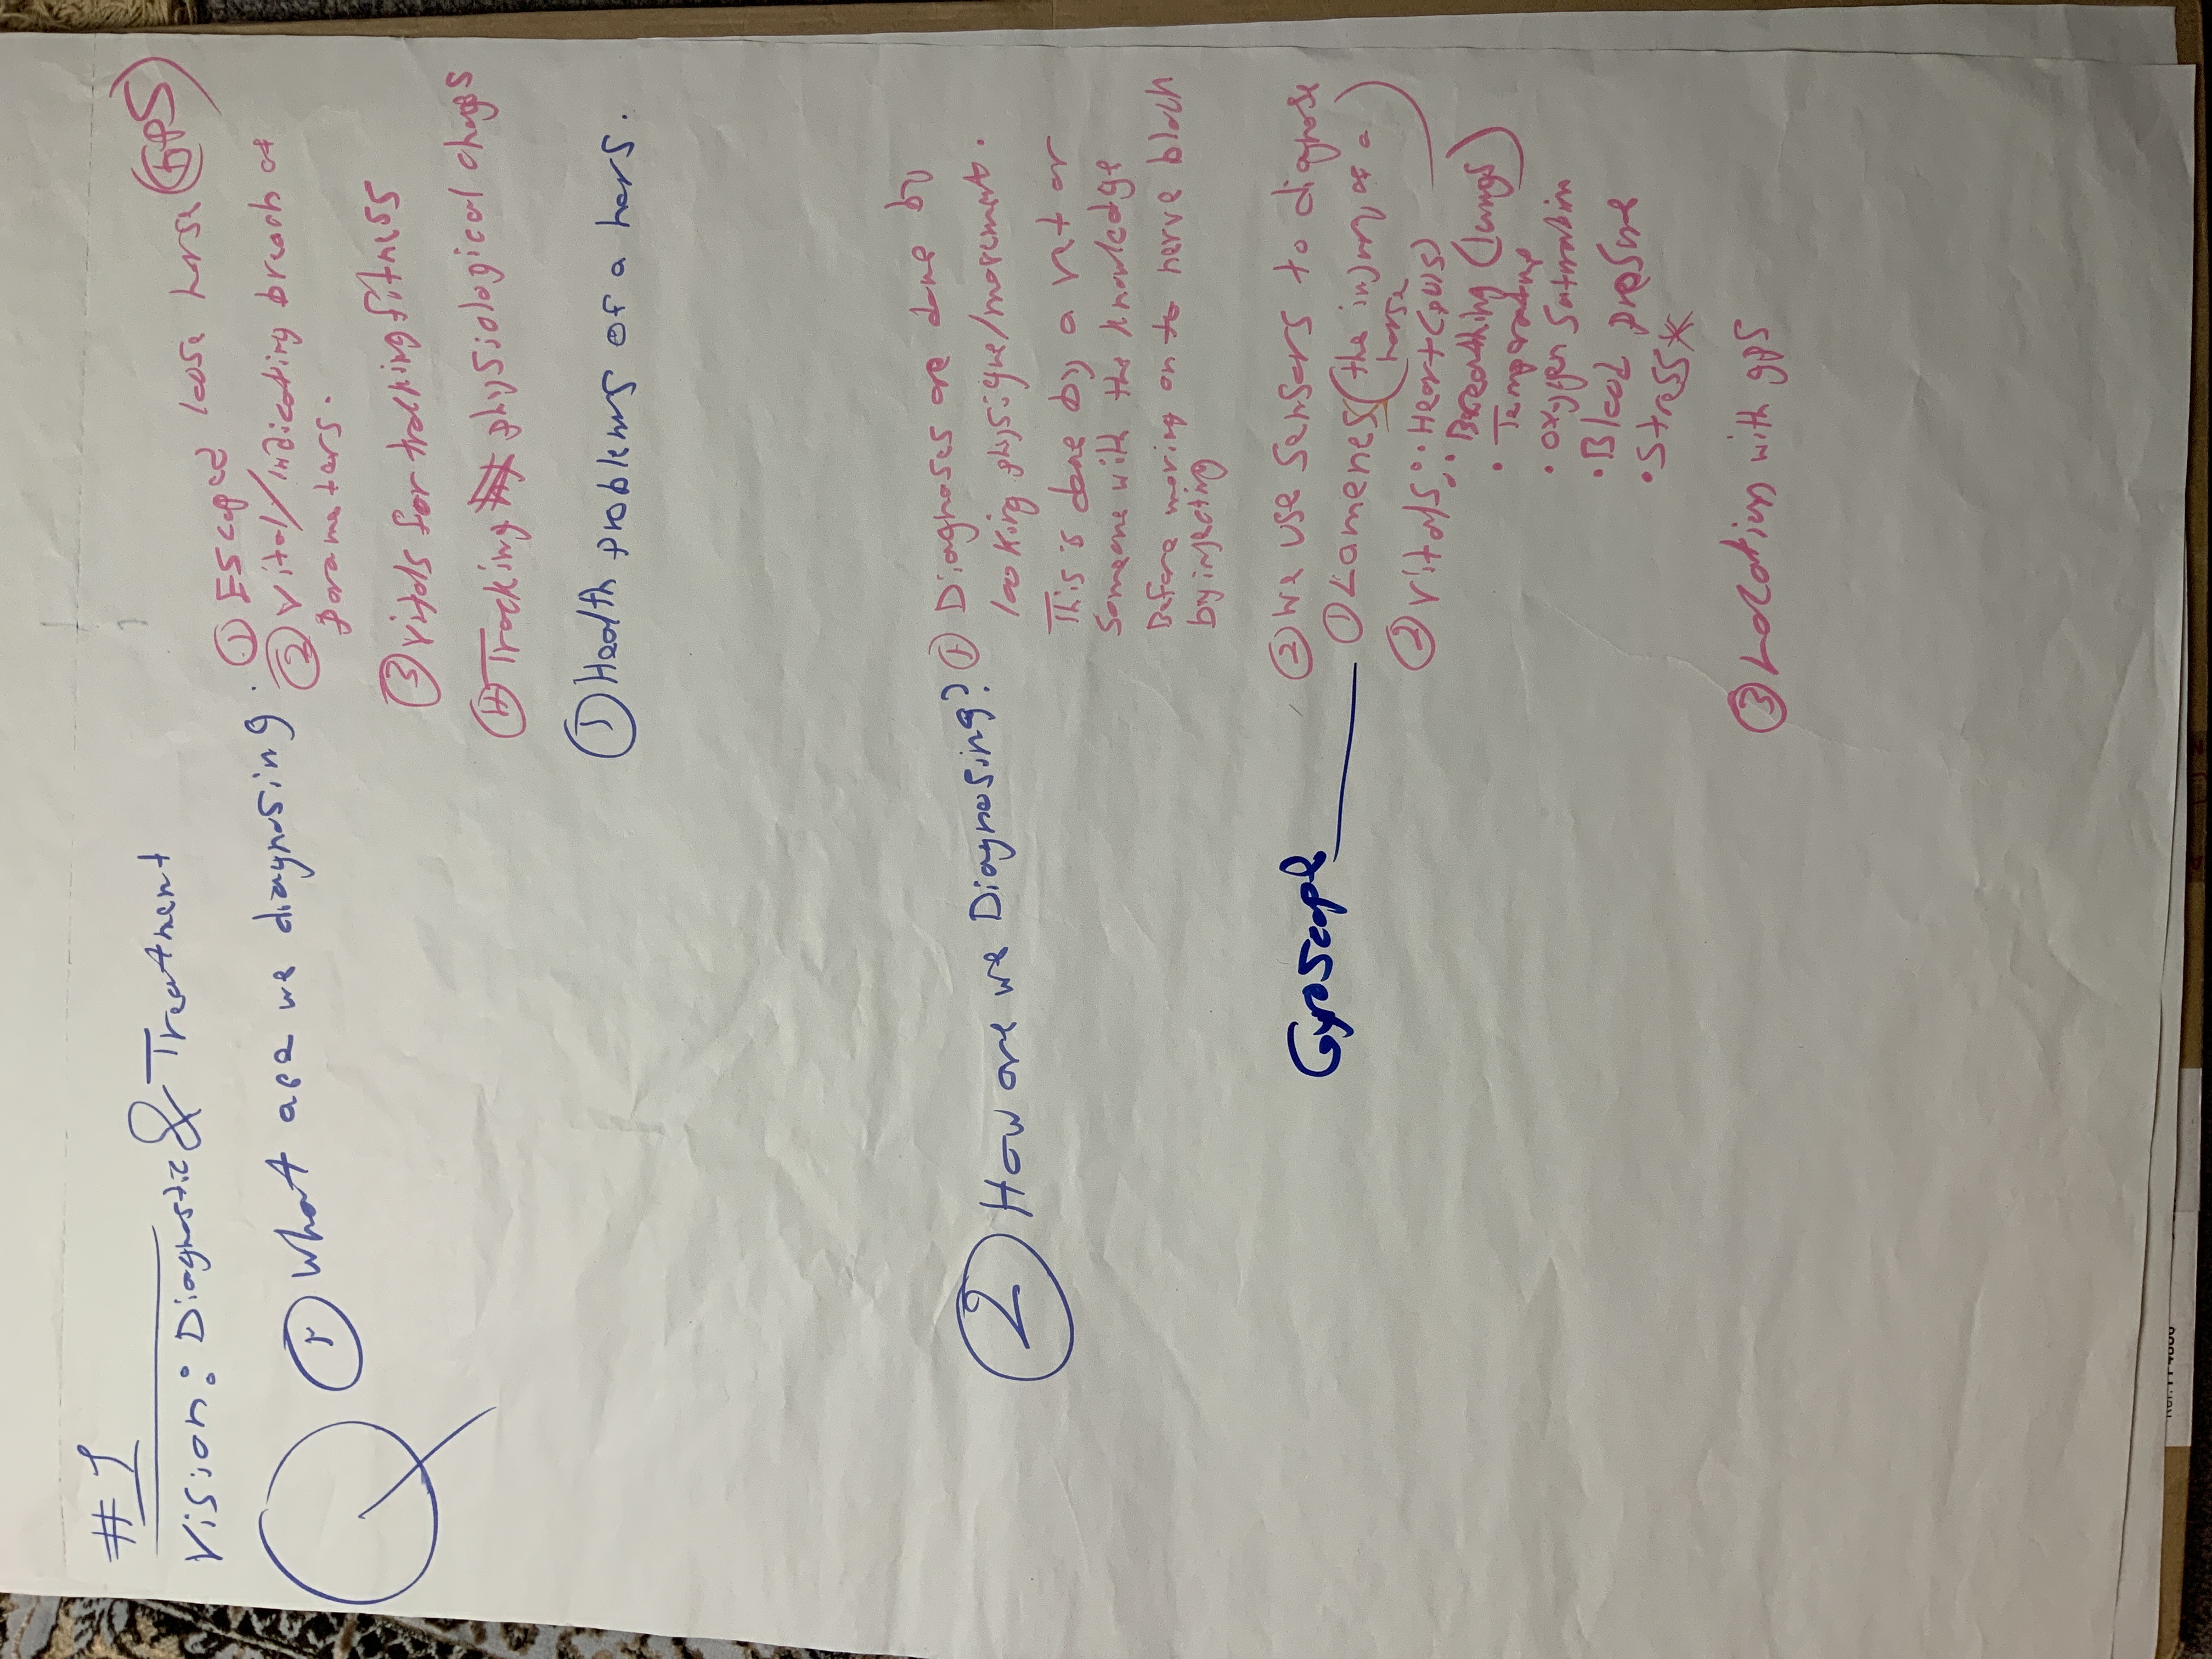 #1
Vision: Diagnostic & Treatment
Q
① What are we diagnosing.
① Escaped loose horse (GPS)
② Vital/indicating breach of
parameters.
③ Vitals for tracking fitness
④ Tracking physiological changs
① Health problems of a hors.
② How are we Diagnosing?
① Diagnoses are done by
looking physique/movement.
This is done by a vet or
someone with the knowledge
Before moving on to nerve block
by injecting
② We use sensors to diagnose
Gyroscope
① Lameness (the injury of a
horse)
② Vitals: • Heart (puls)
• Breathing (lungs)
• Temperature
• Oxygen Saturation
• Blood presure
• Stress*
③ Location with gps